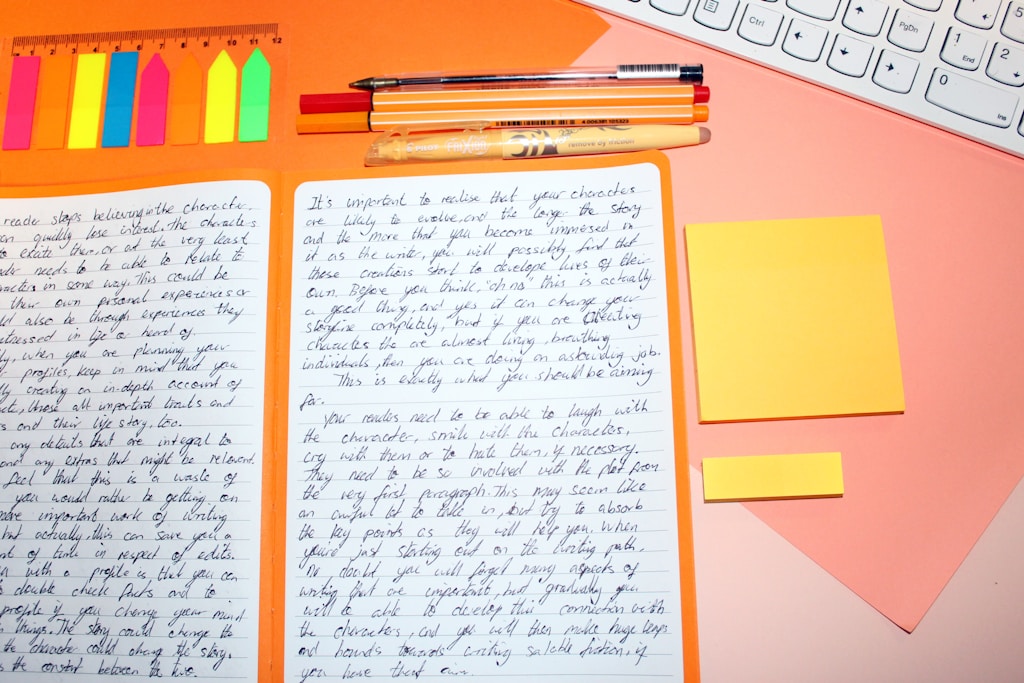 1 2 3 4 5 6 7 8 9 10 11 12
Ctrl
PgDn
1
End
2
0
Ins
5
4 006381 105323
PILOT FRIXION
remove by friction
reader stops believing in the character,
can quickly lose interest. The characters
to excite them, or at the very least
reader needs to be able to relate to
characters in some way. This could be
their own personal experiences or
could also be through experiences they
witnessed in life or heard of.
, when you are planning your
profiles, keep in mind that you
creating an in-depth account of
, those all important traits and
and their life story, too.
any details that are integral to
and any extras that might be relevant.
feel that this is a waste of
you would rather be getting on
more important work of writing
but actually, this can save you a
of time in respect of edits.
with a profile is that you can
double check facts and to
profile if you change your mind
things. The story could change the
the character could change the story,
is the constant between the two.
It's important to realise that your characters
are likely to evolve, and the longer the story
and the more that you become immersed in
it as the writer, you will possibly find that
these creations start to develop lives of their
own. Before you think, "oh no" this is actually
a good thing, and yes it can change your
storyline completely, but if you are creating
characters the are almost living, breathing
individuals, then you are doing an astounding job.
This is exactly what you should be aiming
for.
Your readers need to be able to laugh with
the character, smile with the characters,
cry with them or to hate them, if necessary.
They need to be so involved with the plot from
the very first paragraph. This may seem like
an awful lot to take in, but try to absorb
the key points as they will help you. When
you're just starting out on the writing path,
no doubt you will forget many aspects of
writing that are important, but gradually you
will be able to develop this connection with
the characters, and you will then make huge leaps
and bounds towards writing salable fiction, if
you have that aim.